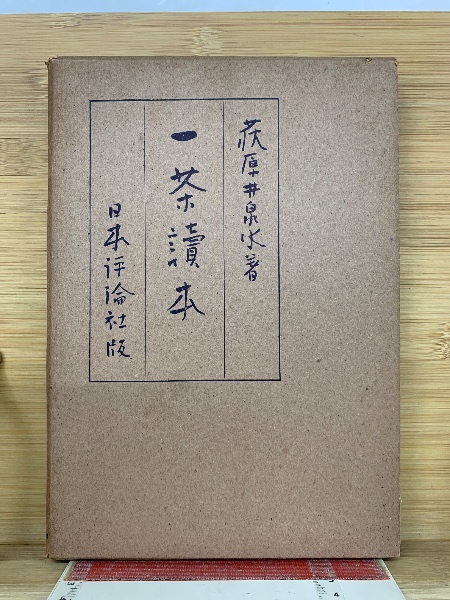 荻原井泉水著
一茶讀本
日本评論社版